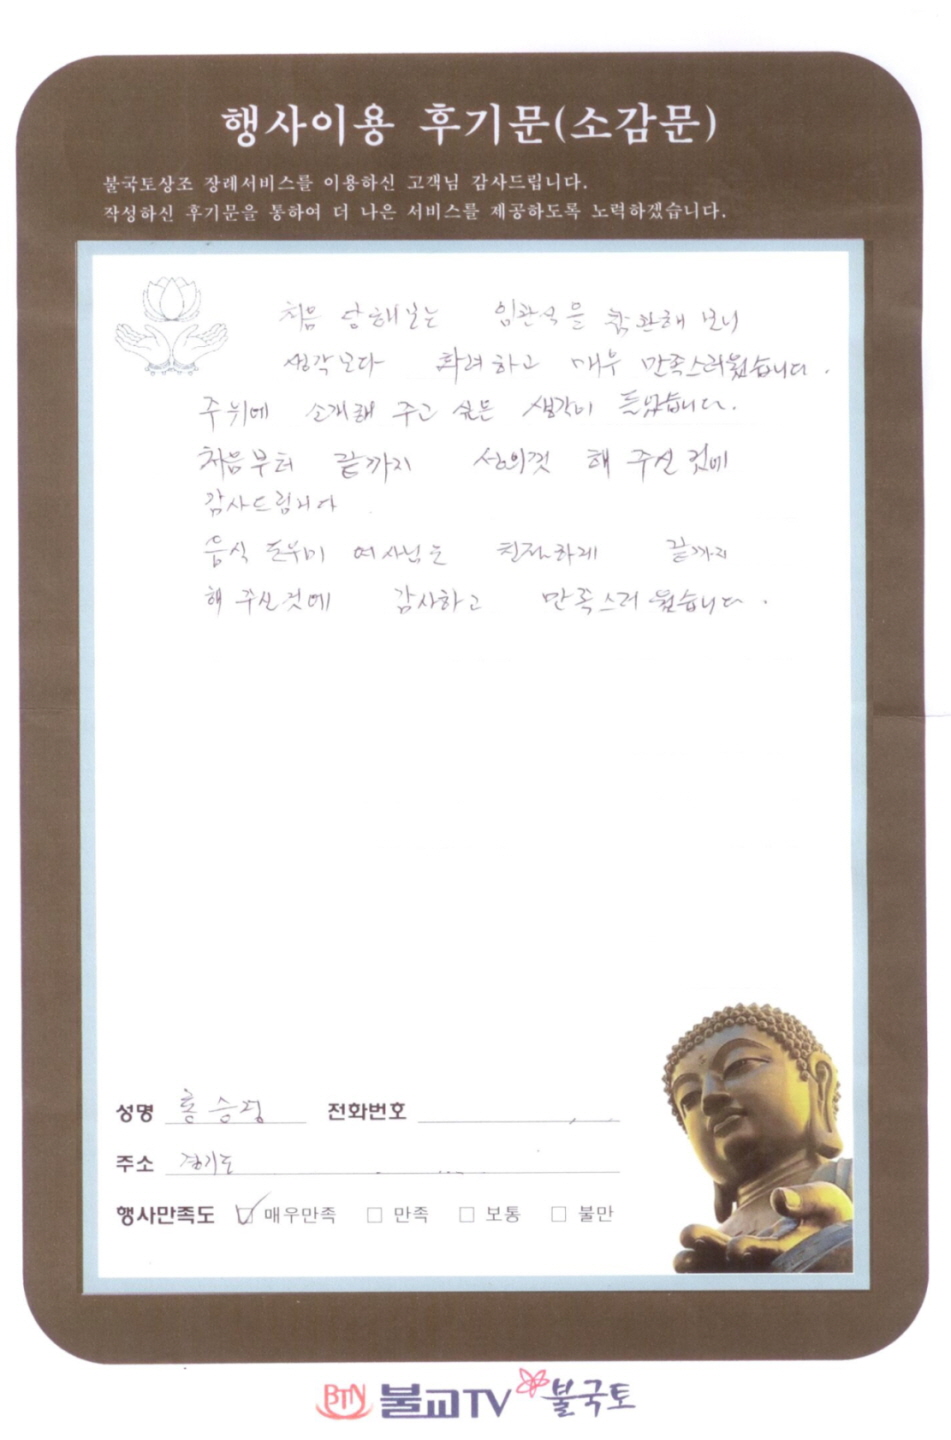 행사이용 후기문(소감문)
불국토상조 장례서비스를 이용하신 고객님 감사드립니다.
작성하신 후기문을 통하여 더 나은 서비스를 제공하도록 노력하겠습니다.
처음 당해보는 입관식을 참관해 보니
생각보다 화려하고 매우 만족스러웠습니다.
주위에 소개해 주고 싶은 생각이 들었습니다.
처음부터 끝까지 성의껏 해 주신 것에
감사드립니다
음식 도우미 여사님도 친절하게 끝까지
해 주신것에 감사하고 만족스러웠습니다.
성명 홍승정 전화번호
주소 경기도
행사만족도 매우만족 만족 보통 불만
BTN 불교TV 불국토